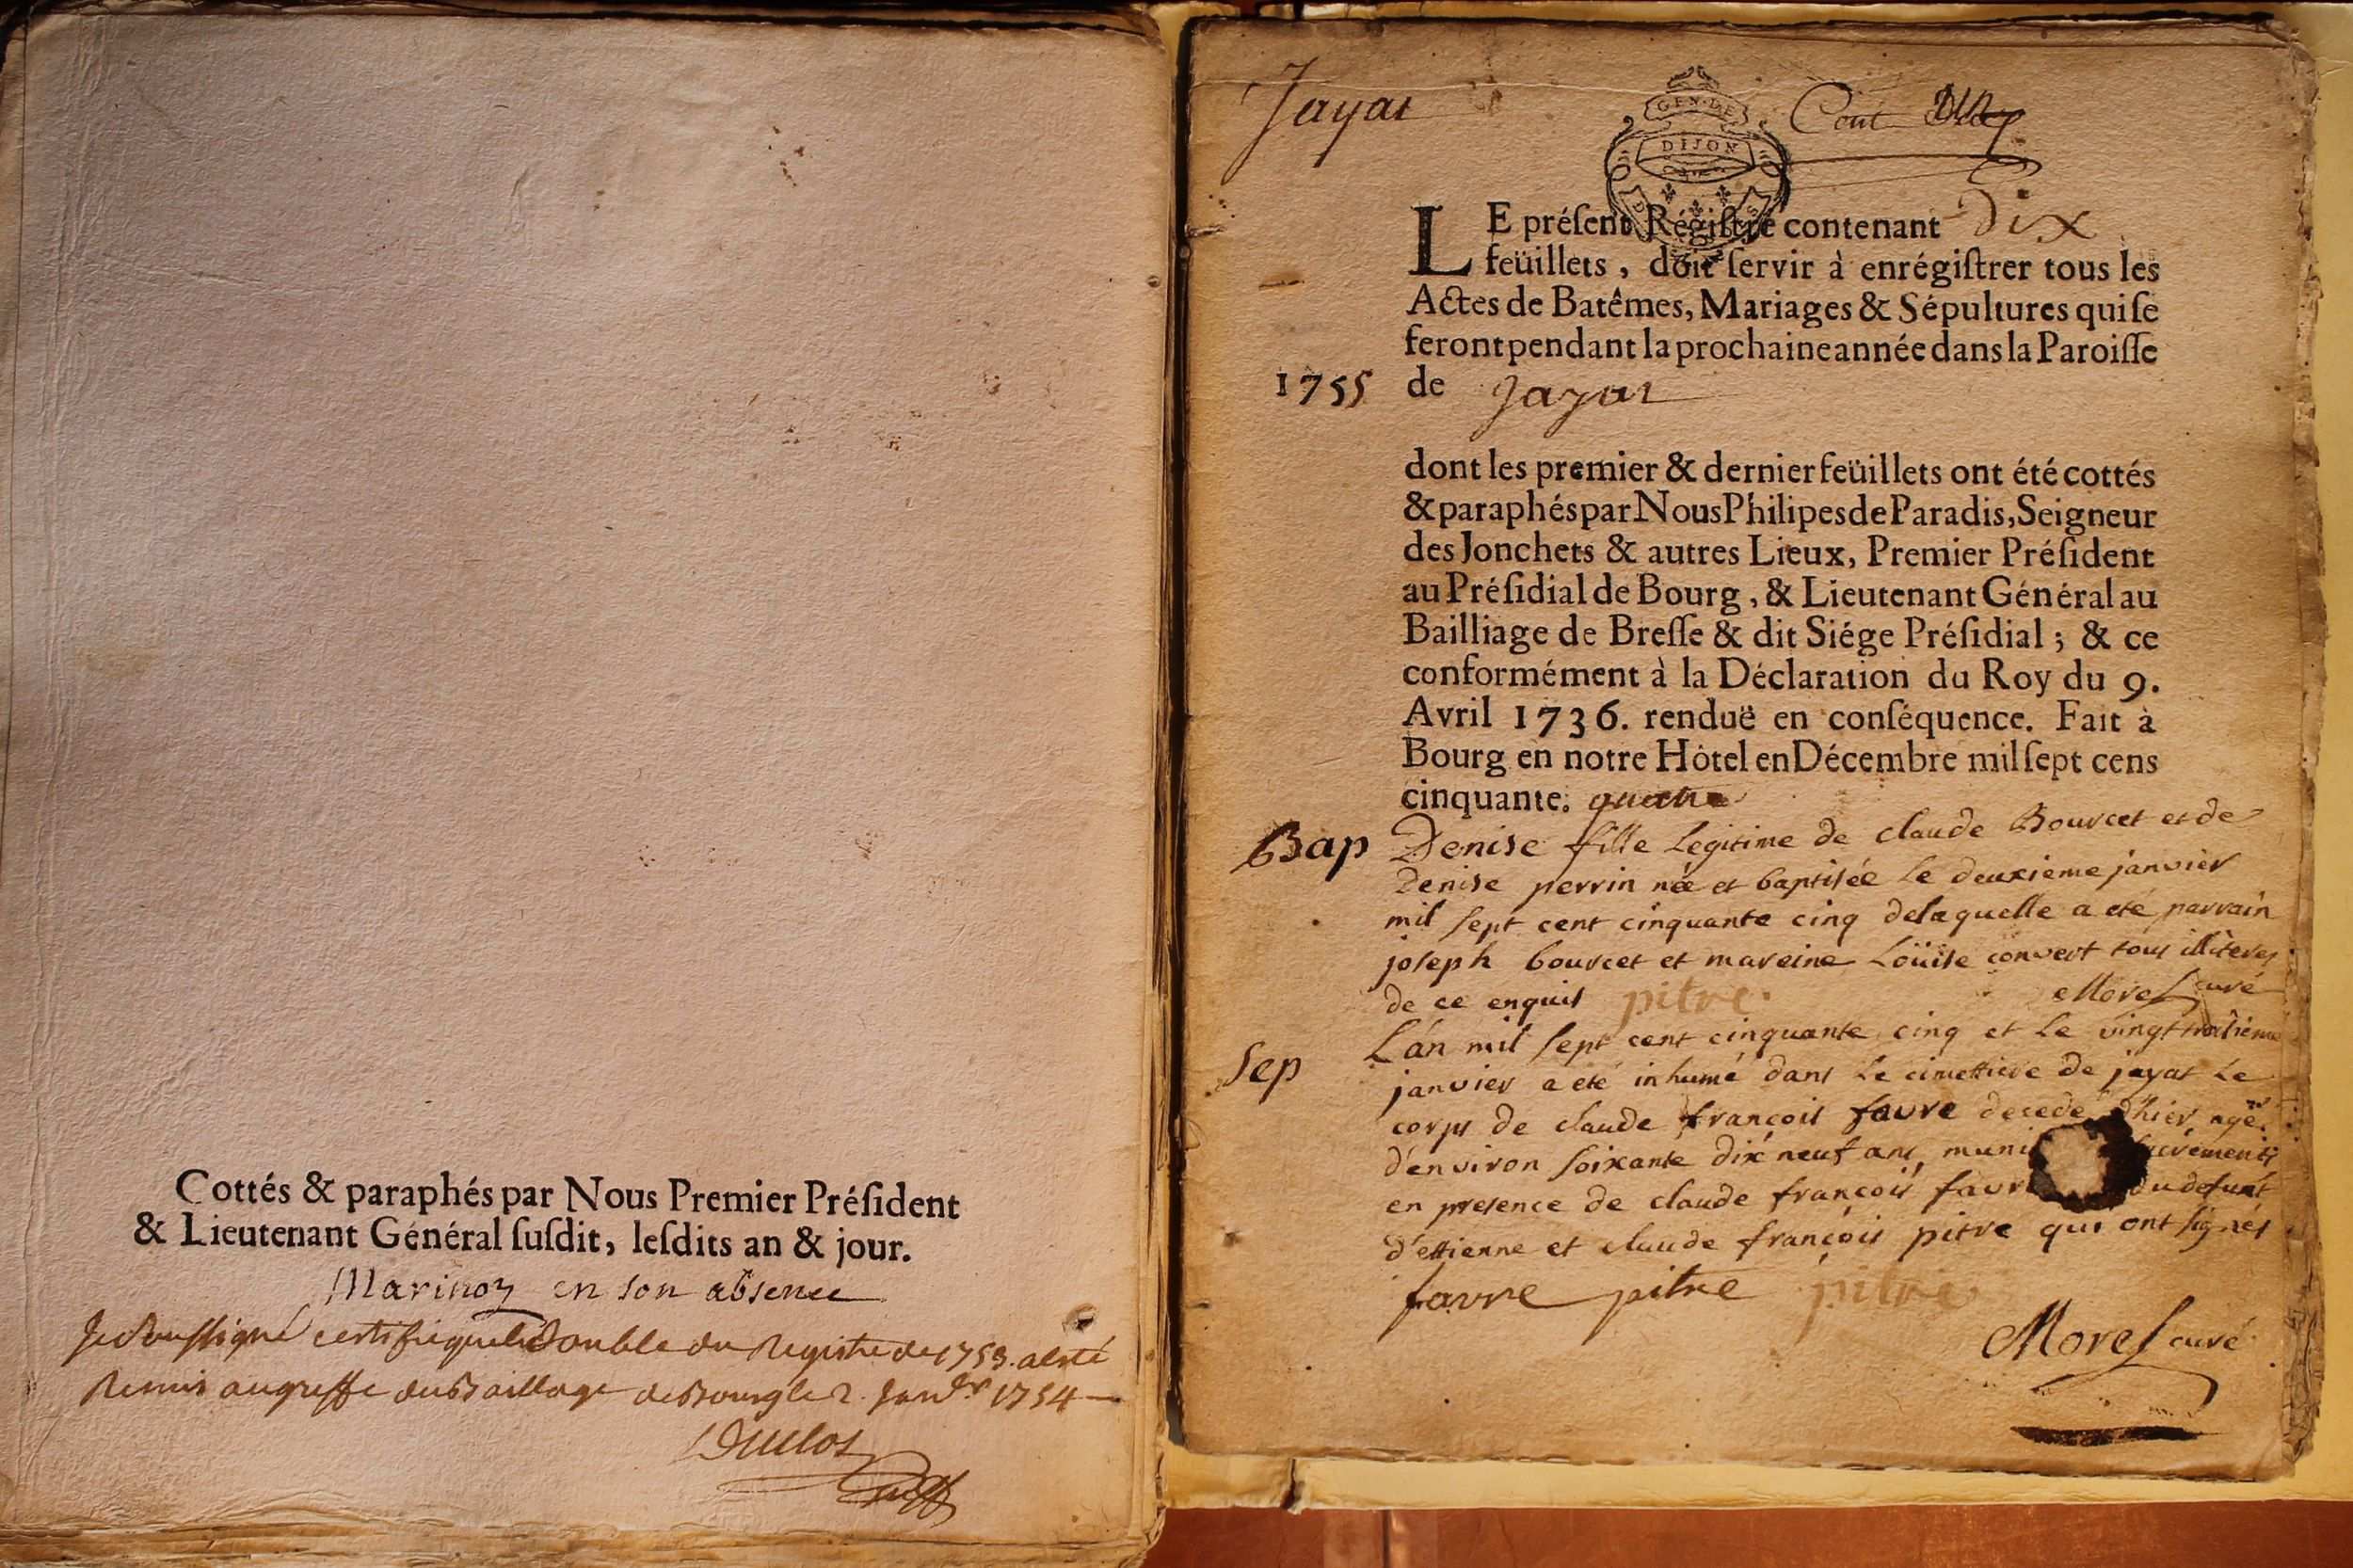 Cottés & paraphés par Nous Premier Préſident
& Lieutenant Général ſuſdit, leſdits an & jour.
Marinon en son absence
Je Soussigné certifie que le Double du Registre de 1753. a esté
Remis au greffe du Baillage de Bourg le 2. Janv.er 1754
Duclos
Jayat
Cent
GEN. DE
DIJON
LE préſent Régiſtre contenant Dix
feüillets, doit ſervir à enrégiſtrer tous les
Actes de Batêmes, Mariages & Sépultures qui ſe
feront pendant la prochaine année dans la Paroiſſe
1755 de Jayat
dont les premier & dernier feüillets ont été cottés
& paraphés par Nous Philipes de Paradis, Seigneur
des Jonchets & autres Lieux, Premier Préſident
au Préſidial de Bourg, & Lieutenant Général au
Bailliage de Breſſe & dit Siége Préſidial ; & ce
conformément à la Déclaration du Roy du 9.
Avril 1736. renduë en conſéquence. Fait à
Bourg en notre Hôtel en Décembre mil ſept cens
cinquante. quatre
Bap Denise fille legitime de claude Bourcet et de
Denise perrin née et baptisée le deuxieme janvier
mil sept cent cinquante cinq delaquelle a eté parrain
joseph bourcet et mareine Loüise convert tous illiteres
de ce enquis pitre Morel curé
Sep L'an mil sept cent cinquante cinq et le vingt troisieme
janvier a eté inhumé dans le cimettiere de jayat le
corps de claude françois favre decedé d'hier agé
d'environ soixante dix neuf ans, muni
en presence de claude françois du defunt
d'ettienne et claude françois pitre qui ont signés
favre pitre pitre
Morel curé